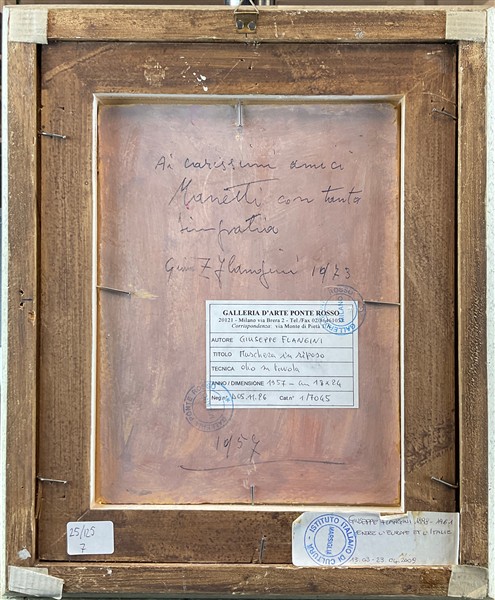 Ai carissimi amici
Manetti con tanta
simpatia
G. Flangini 1973
GALLERIA D'ARTE PONTE ROSSO
20121 - Milano via Brera 2 - Tel./Fax
Corrispondenza: via Monte di Pietà
AUTORE GIUSEPPE FLANGINI
TITOLO Maschera in riposo
TECNICA olio su tavola
ANNO / DIMENSIONE 1957 - cm 18x24
Neg. n° 205.11.96 Cat. n° 1/7045
PONTE ROSSO
1957
25/125
7
ISTITUTO ITALIANO DI CULTURA
MARSIGLIA
GIUSEPPE FLANGINI 1898-1961
ENTRE L'EUROPE ET L'ITALIE
15.03-23.04.2005